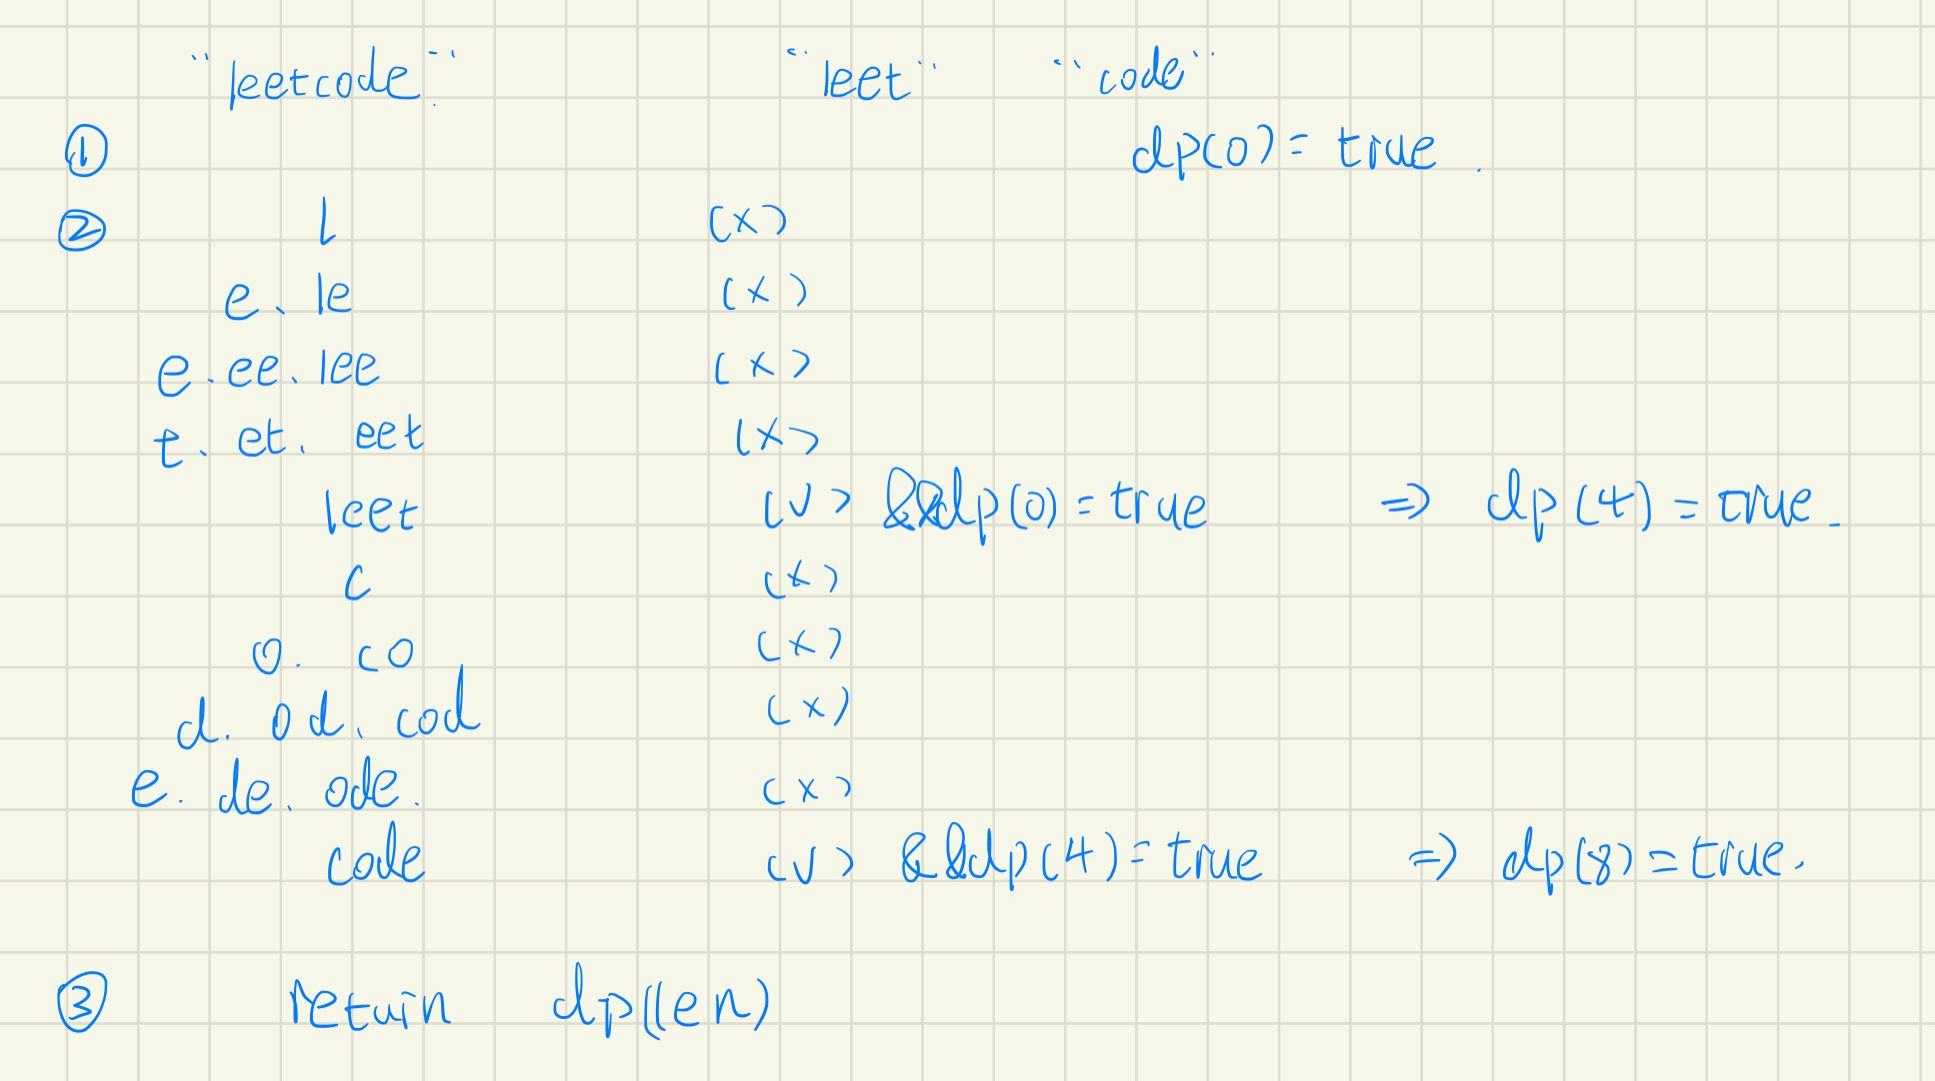 "leetcode" "leet" "code"
① dp(0) = true.
② l (x)
e、le (x)
e.ee、lee (x)
t、et. eet (x)
leet (v) &&dp(0) = true => dp(4) = true.
c (x)
o. co (x)
d. od、cod (x)
e. de. ode. (x)
code (v) &&dp(4) = true => dp(8) = true.
③ return dp(len)